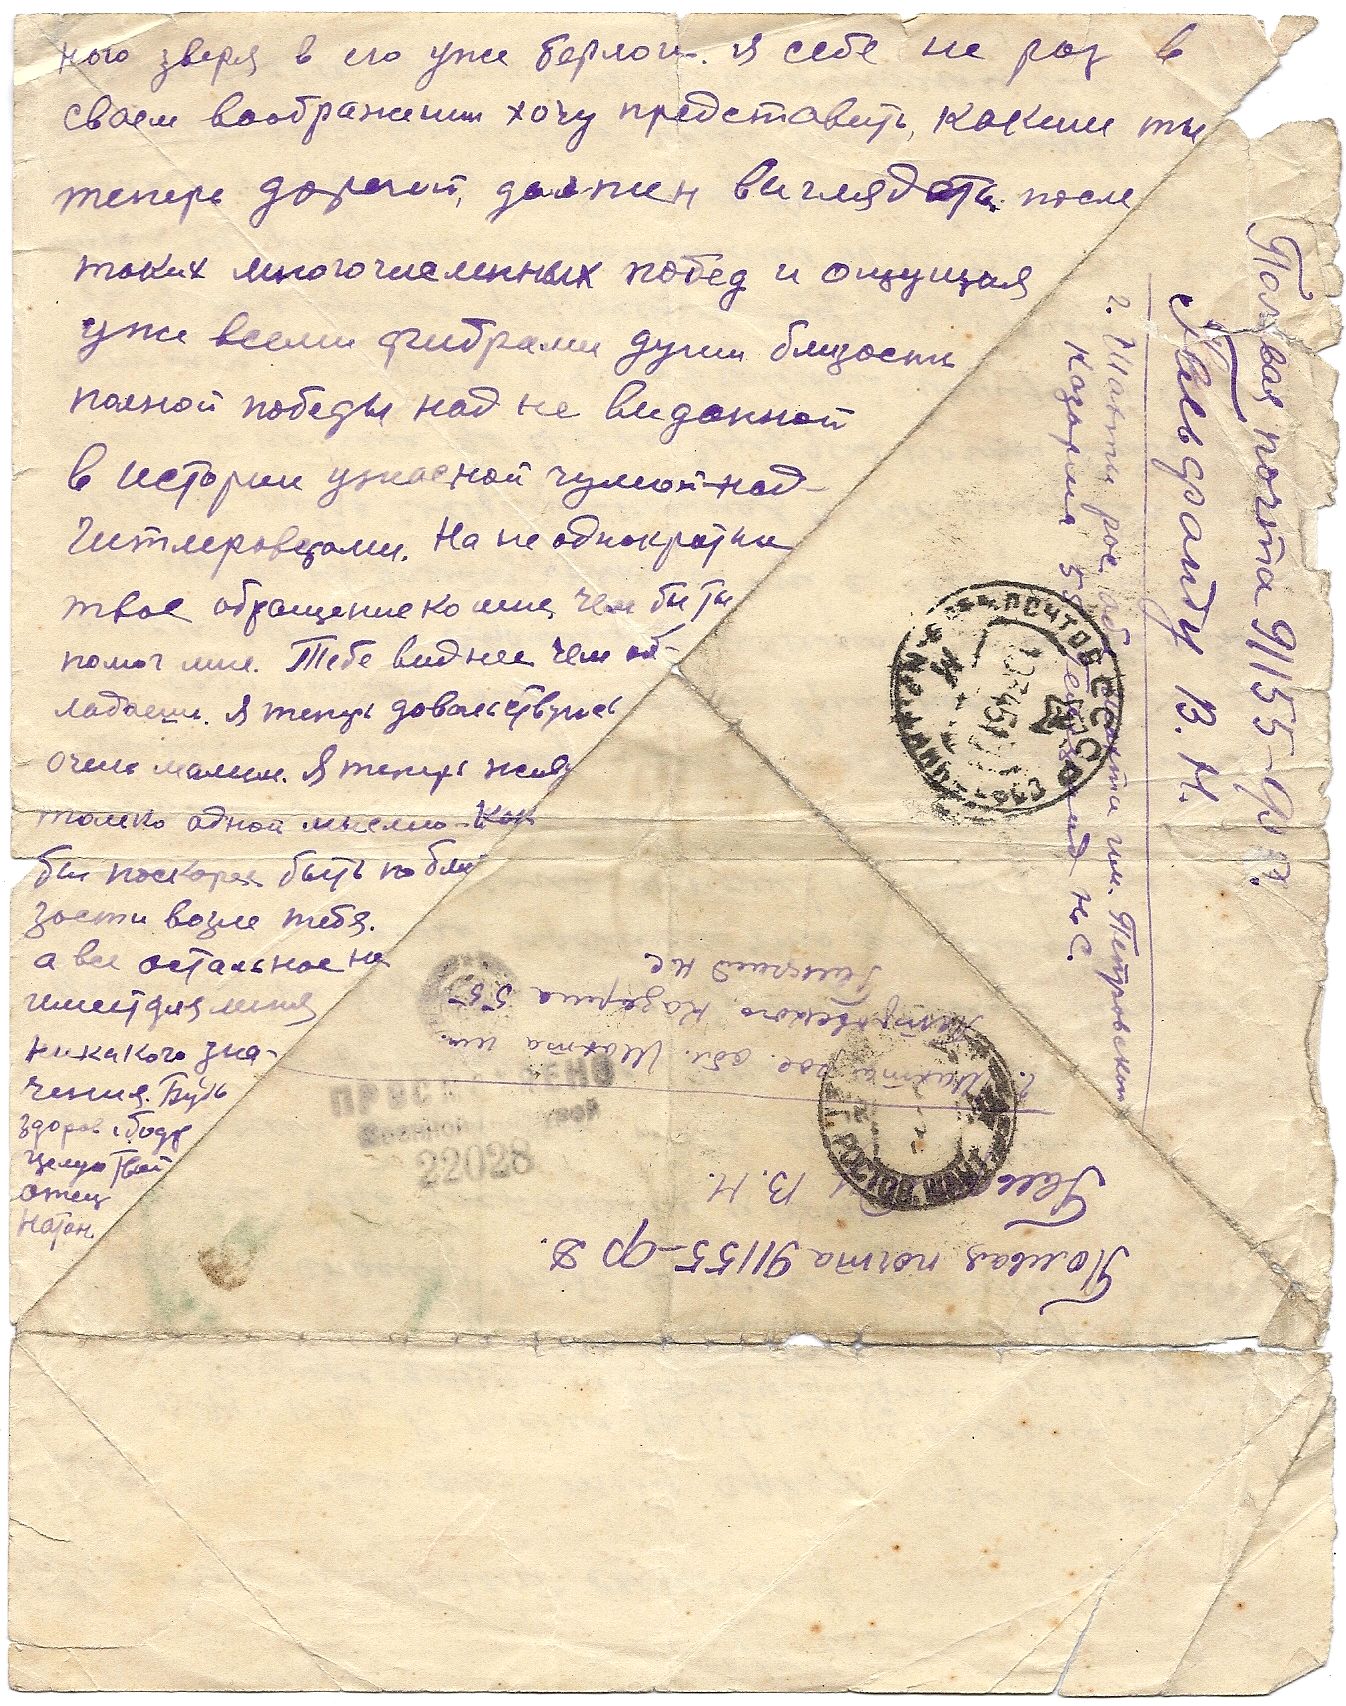 ного зверя в его уже берлоги. Я себе не раз в
своем воображении хочу представить, какими ты
теперь дорогой, должен выглядеть после
таких многочисленных побед и ощущая
уже всеми фибрами души близость
полной победы над не виданной
в истории ужасной чумой над
Гитлеровцами. На не однократные
твое обращение ко мне, чем бы ты
помог мне. Тебе виднее чем об-
ладаеш. Я теперь довольствуюсь
очень малым. Я теперь живу
только одной мыслию - как
бы поскорее быть по бли
зости возле тебя.
а все остальное не
имеет для меня
никакого зна-
чения. Будь
здоров и бодр
целую Твой
отец
Натан.
Полевая почта 91155-ф
Гельфанду В. Н.
г. Шахты рос. обл. шахта им. Петровского
Казарма 55 Гельфанд Н.С.
Полевая почта 91155-ф Д.
В. Н.
г. Шахты рос. обл. Шахта им.
Петровского Казарма 55
Гельфанд Н С.
ПРОСМОТРЕНО
Военной Цензурой
22028
СССР
ПОЧТОВ
45
ШАХТЫ РОСТОВ.